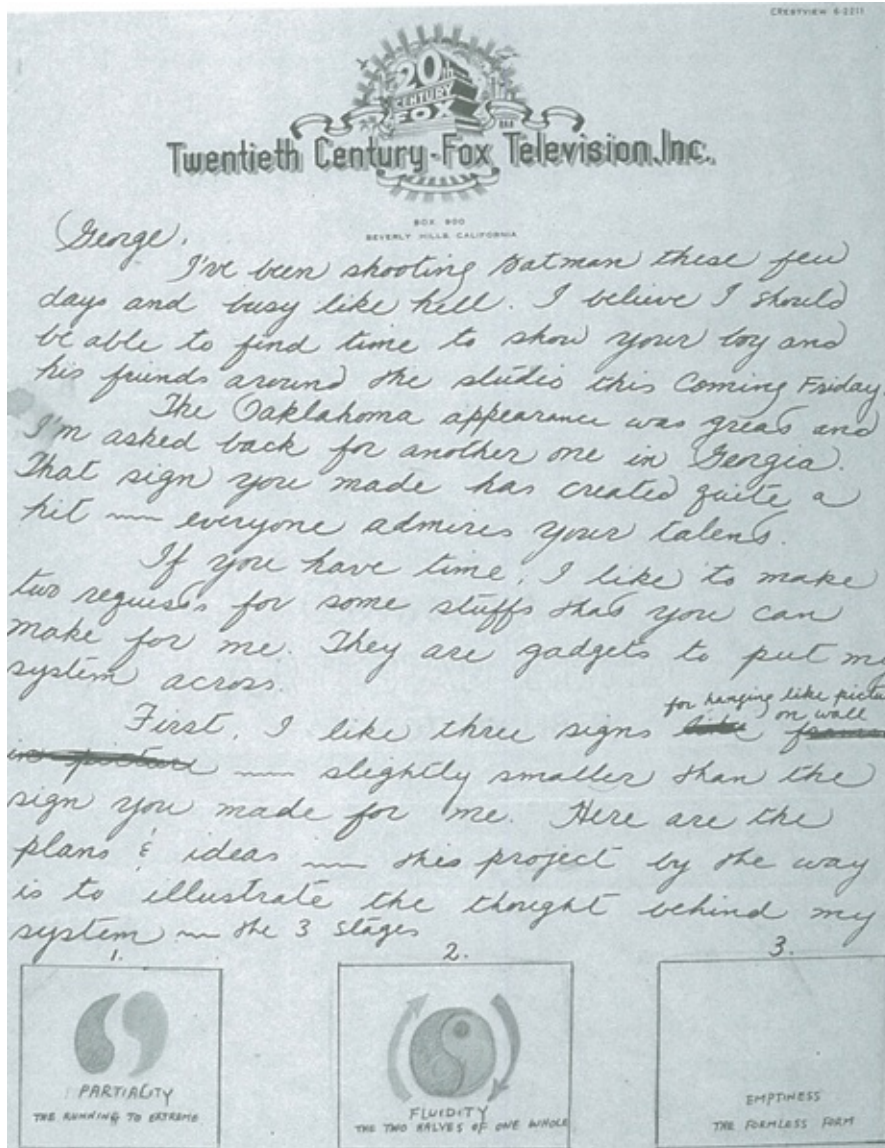 CRESTVIEW 6-2211
20th
CENTURY
FOX
Twentieth Century-Fox Television, Inc.
BOX 900
BEVERLY HILLS, CALIFORNIA
George,
I've been shooting Batman these few
days and busy like hell. I believe I should
be able to find time to show your boy and
his friends around the studio this Coming Friday
The Oaklahoma appearance was great and
I'm asked back for another one in Georgia.
That sign you made has created quite a
hit — everyone admires your talent.
If you have time, I like to make
two requests for some stuffs that you can
make for me. They are gadgets to put my
system across.
for hanging like picture
First, I like three signs like on wall
in picture — slightly smaller than the
sign you made for me. Here are the
plans & ideas — this project by the way
is to illustrate the thought behind my
system — the 3 stages
1. 2. 3.
PARTIALITY
THE RUNNING TO EXTREME
FLUIDITY
THE TWO HALVES OF ONE WHOLE
EMPTINESS
THE FORMLESS FORM